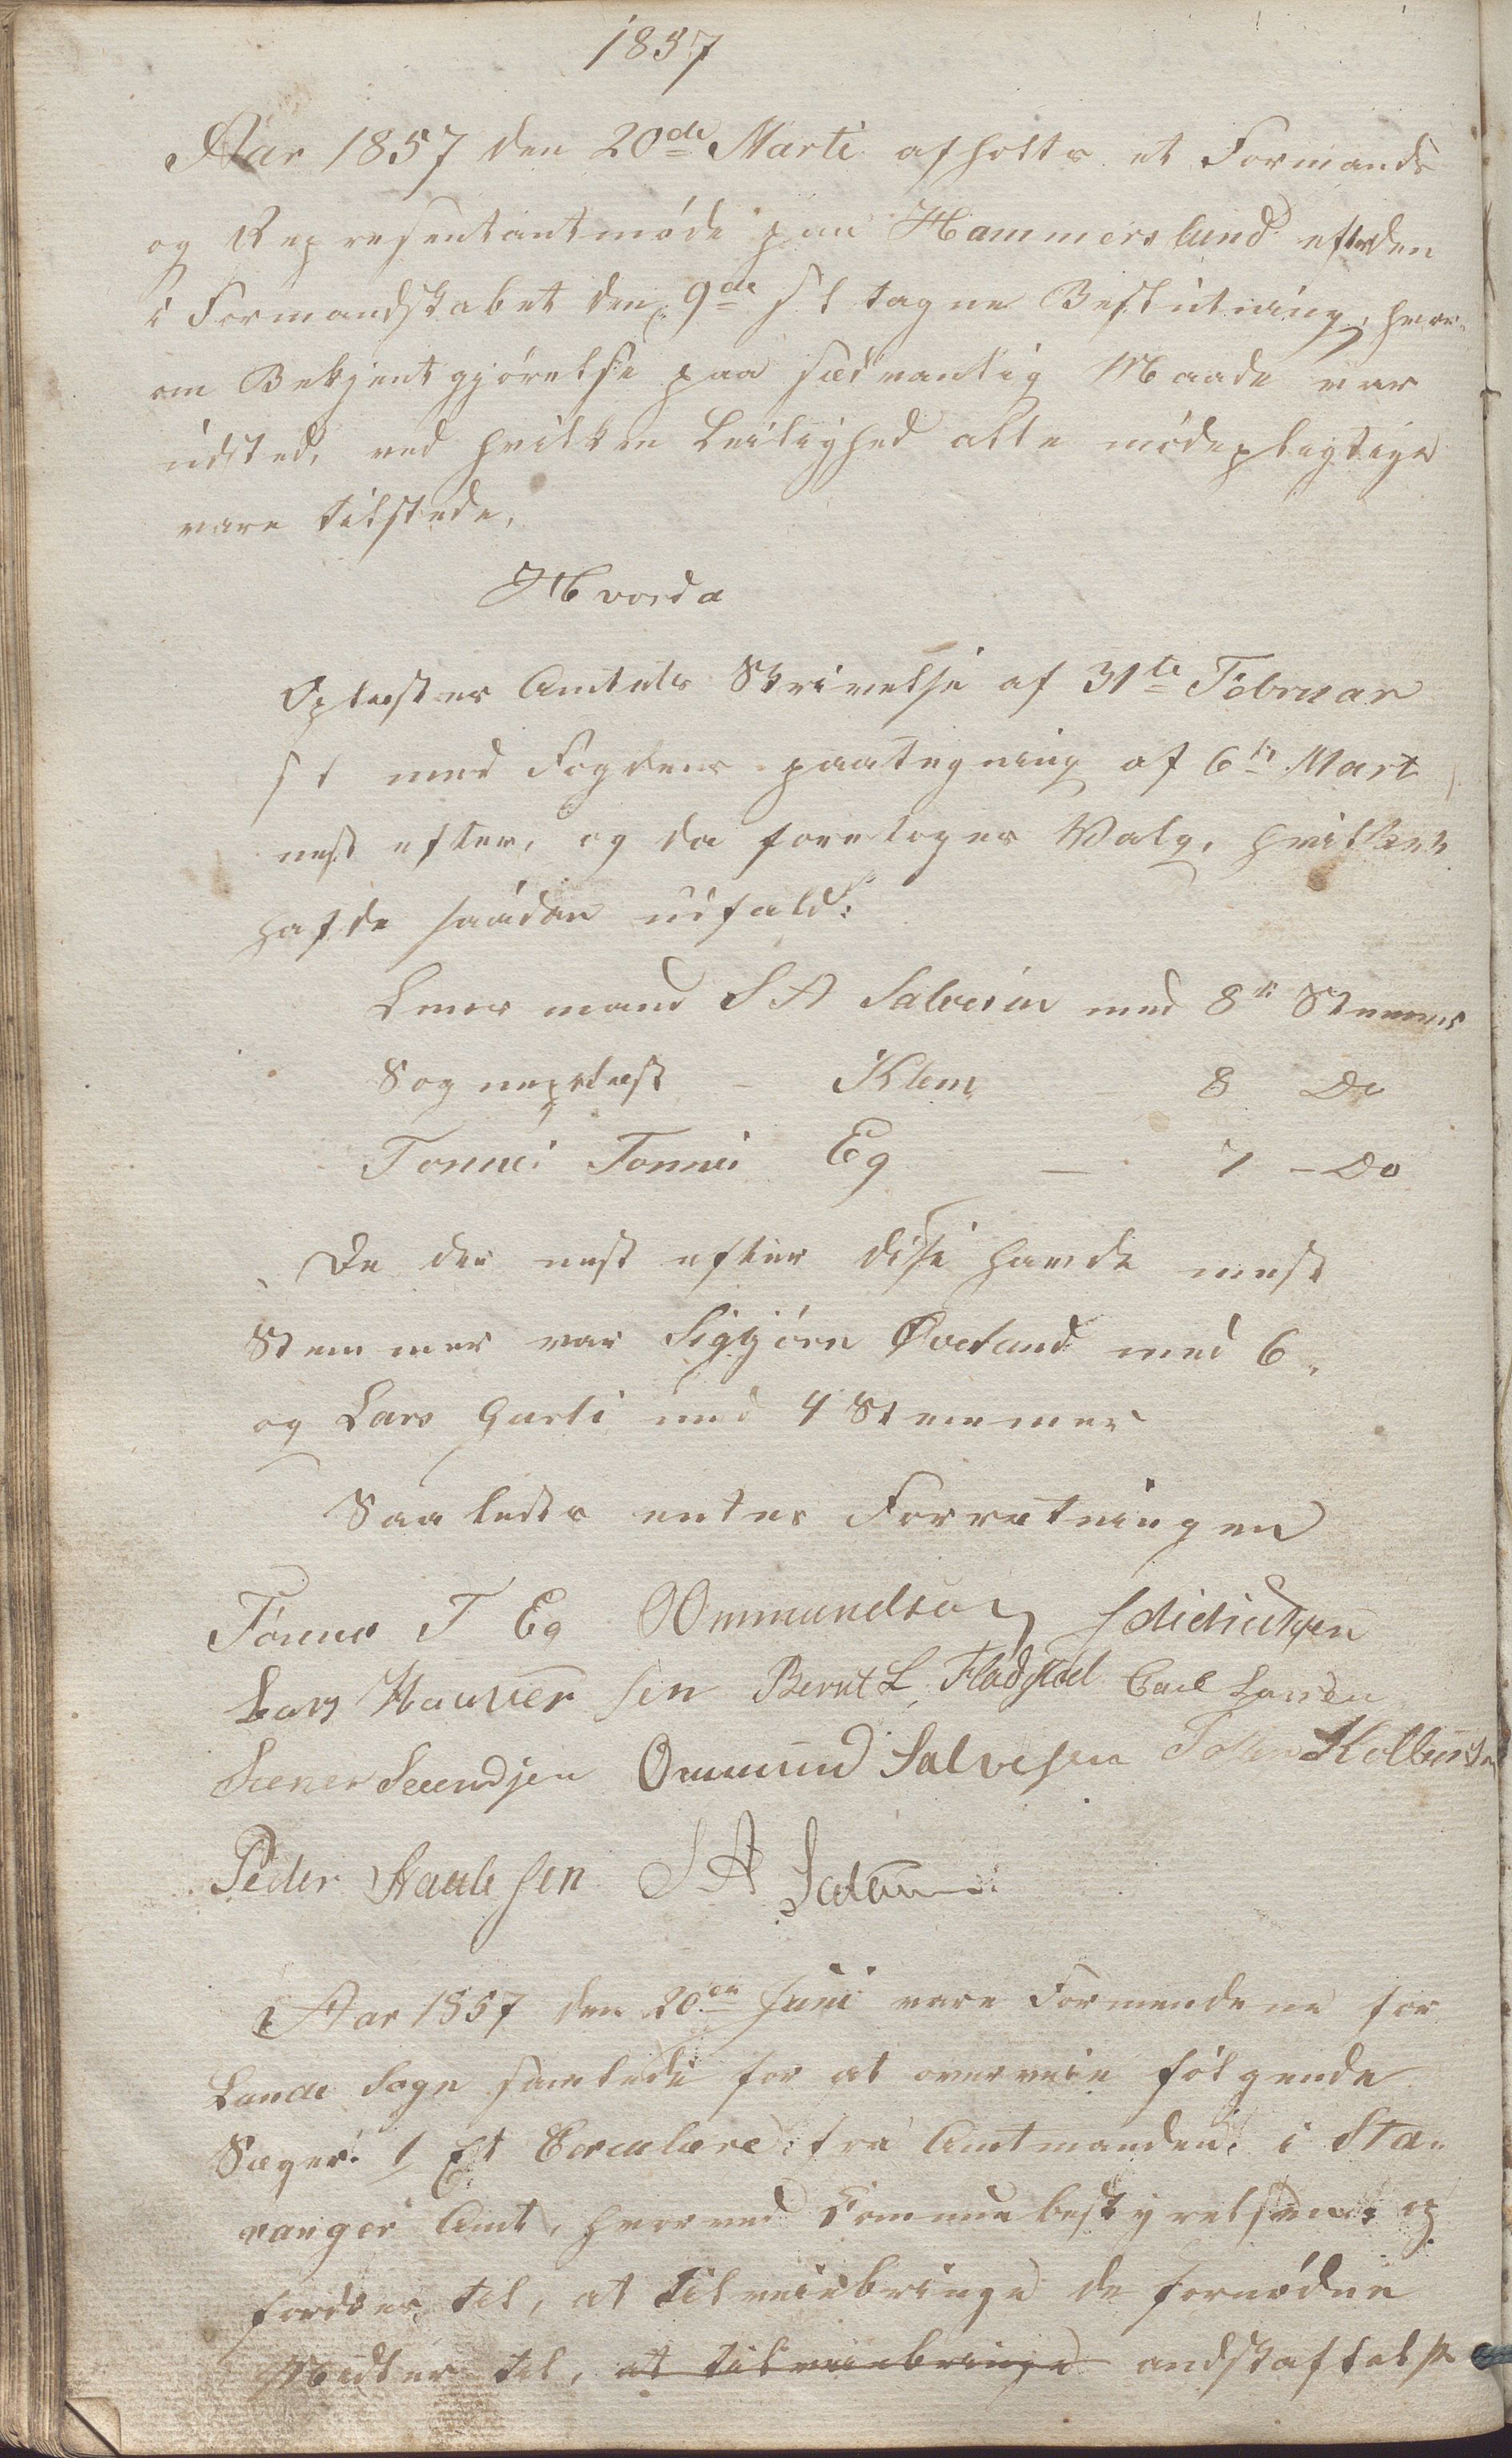 1857
Aar 1857 den 20de Marti afholtes et Formands
og Representantmøde paa Hammerslund efter den
i Formandskabet den 9de s t tagne Beslutning, hvor-
om Bekjentgjørelse paa sædvanlig Maade var
udsted, ved hvilken Leilighed alle mødepligtige
vare tilstede,
Hvorda
Oplæstes Amtets Skrivelse af 31te Februar
s t med Fogdens paategning af 6te Mart
nest efter, og da foretoges Valg, hvilket
hafde saadan udfald:
Lensmand S A Salvesen med 8te Stemmer
Sogneprest - Klem 8 Do
Tonnes Tonnes Eg - 7 - Do
De der nest efter disse havde mest
Stemmer var Sigbjørn Øveland med 6,
og Lars Garti med 4 Stemmer
Saaledes entes Forretningen
Tønnes T Eg OOmmundsen
Lars Hauversen Bernt L. Fladstøl Carl Larsen
Svendsen Ommund Salvesen
Peder Paulsen S A Salvesen
Aar 1857 den 20en Juni vare Formendene for
Lunde Sogn samlede for at overveie følgende
Sager. 1 Et Circulære fra Amtmanden i Sta-
vanger Amt, hvorved Communebestyrelsen op
fordres til, at tilveiebringe de fornødne
Midler til, at tilveiebringe andskaffelse